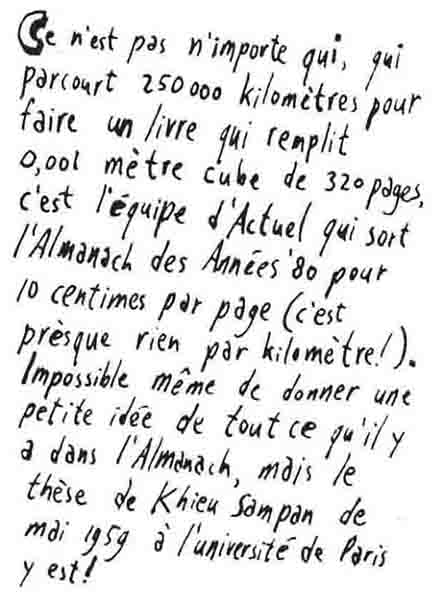 Ce n'est pas n'importe qui, qui
parcourt 250 000 kilomètres pour
faire un livre qui remplit
0,001 mètre cube de 320 pages,
c'est l'équipe d'Actuel qui sort
l'Almanach des Années '80 pour
10 centimes par page (c'est
prèsque rien par kilomètre!).
Impossible même de donner une
petite idée de tout ce qu'il y
a dans l'Almanach, mais le
thèse de Khieu Sampan de
mai 1959 à l'université de Paris
y est!